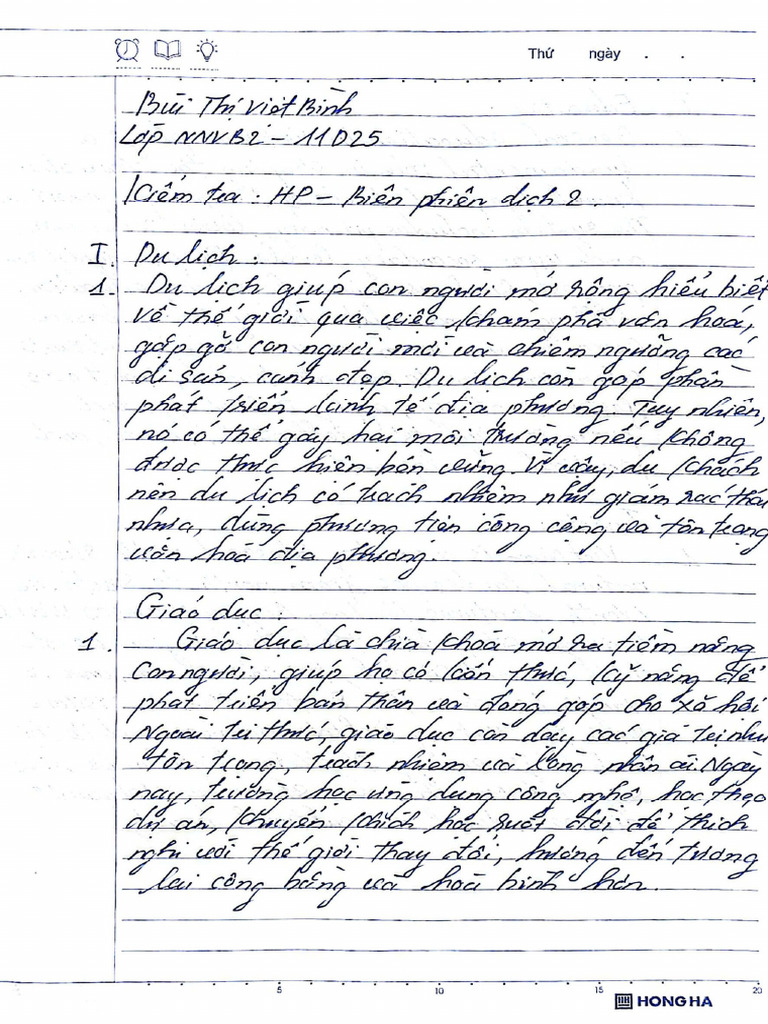 Thứ ngày . .
Bùi Thị Việt Bình
Lớp NNVB2 - 11D25
Kiểm tra : HP - Biên phiên dịch 2 .
I. Du lịch :
1. Du lịch giúp con người mở rộng hiểu biết
về thế giới qua việc khám phá văn hoá,
gặp gỡ con người mới và chiêm ngưỡng các
di sản, cảnh đẹp. Du lịch còn góp phần
phát triển kinh tế địa phương. Tuy nhiên,
nó có thể gây hại môi trường nếu không
được thực hiện bền vững. Vì vậy, du khách
nên du lịch có trách nhiệm như giảm rác thải
nhựa, dùng phương tiện công cộng và tôn trọng
văn hoá địa phương.
Giáo dục :
1. Giáo dục là chìa khoá mở ra tiềm năng
con người, giúp họ có kiến thức, kỹ năng để
phát triển bản thân và đóng góp cho xã hội
Ngoài tri thức, giáo dục còn dạy các giá trị như
tôn trọng, trách nhiệm và lòng nhân ái. Ngày
nay, trường học ứng dụng công nghệ, học theo
dự án, khuyến khích học suốt đời để thích
nghi với thế giới thay đổi, hướng đến tương
lai công bằng và hoà bình hơn.
5 10 15 20
HONG HA